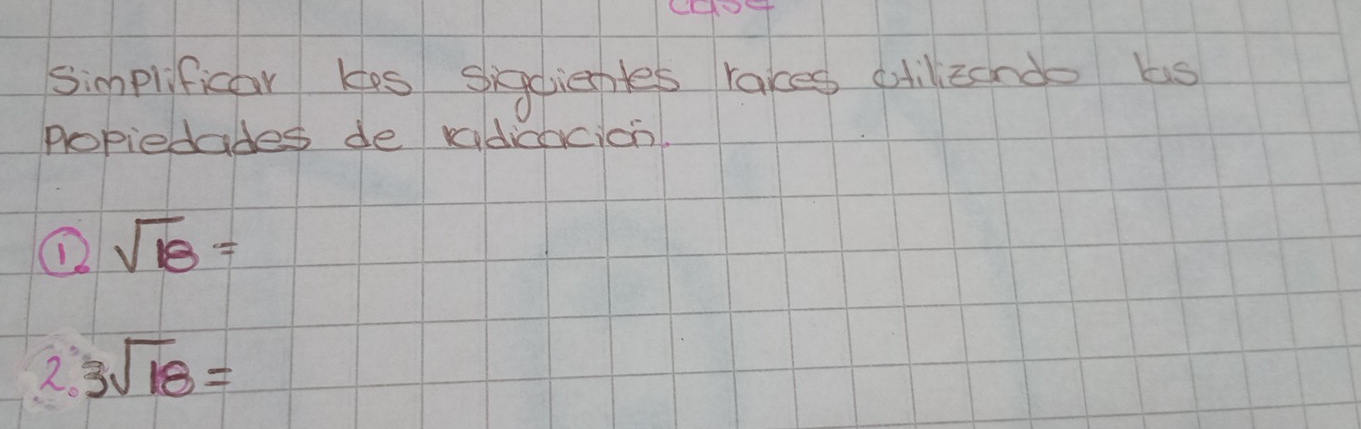 Simplificar las siguientes raices utilizando las
propiedades de radicación.
① √18 =
2. 3√18 =